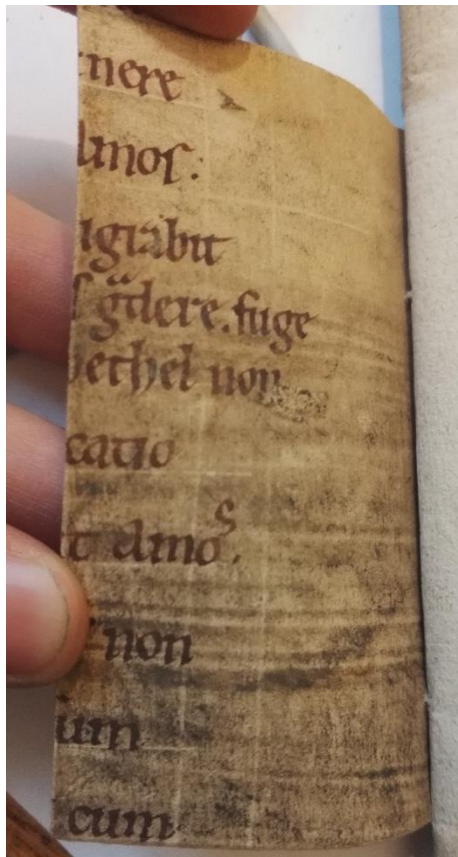 inere
Amos:
igrabit
s gͣdere. fuge
bethel non
catio
t Amos.
non
um
cum